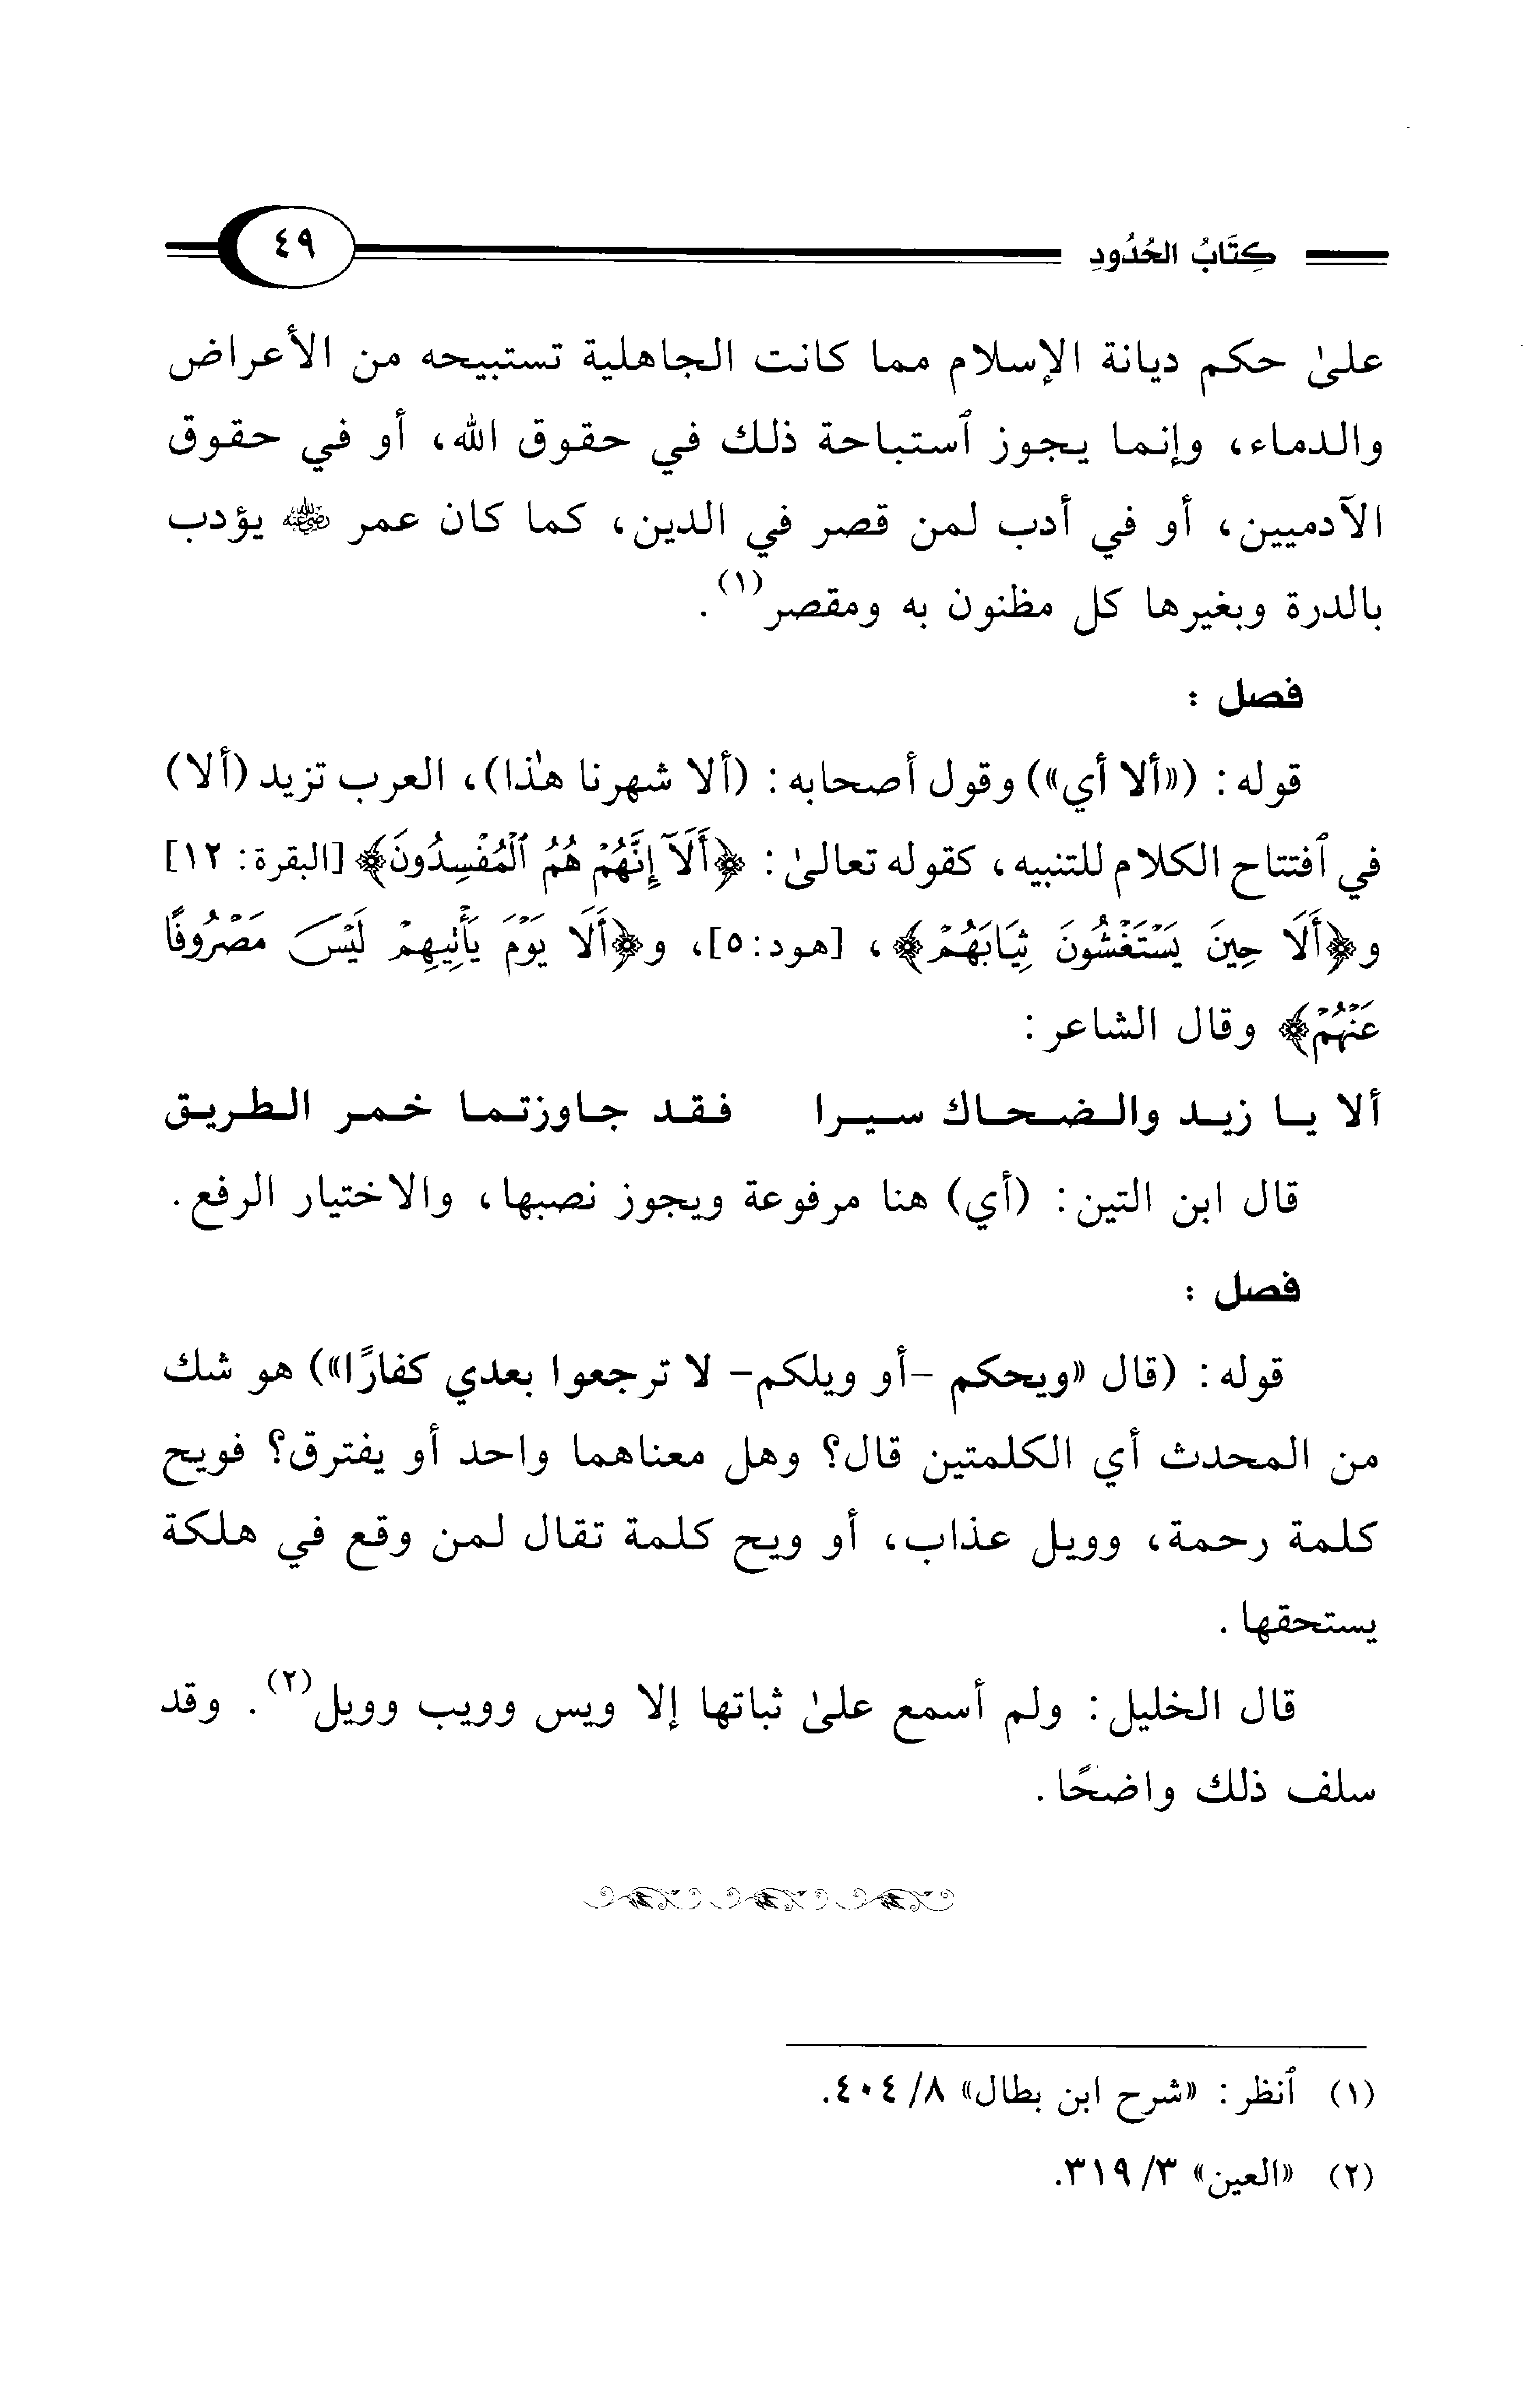 كِتَابُ الحُدُودِ ٤٩
علىٰ حكم ديانة الإسلام مما كانت الجاهلية تستبيحه من الأعراض
والدماء، وإنما يجوز ٱستباحة ذلك في حقوق الله، أو في حقوق
الآدميين، أو في أدب لمن قصر في الدين، كما كان عمر رضي الله عنه يؤدب
بالدرة وبغيرها كل مظنون به ومقصر(١).
فصل :
قوله : («ألا أي») وقول أصحابه : (ألا شهرنا هٰذا)، العرب تزيد (ألا)
في ٱفتتاح الكلام للتنبيه، كقوله تعالىٰ : ﴿أَلَآ إِنَّهُمْ هُمُ ٱلْمُفْسِدُونَ﴾ [البقرة: ١٢]
و﴿أَلَا حِينَ يَسْتَغْشُونَ ثِيَابَهُمْ﴾، [هود: ٥]، و﴿أَلَا يَوْمَ يَأْتِيهِمْ لَيْسَ مَصْرُوفًا
عَنْهُمْ﴾ وقال الشاعر :
ألا يا زيد والضحاك سيرا فقد جاوزتما خمر الطريق
قال ابن التين : (أي) هنا مرفوعة ويجوز نصبها، والاختيار الرفع.
فصل :
قوله : (قال «ويحكم -أو ويلكم- لا ترجعوا بعدي كفارًا») هو شك
من المحدث أي الكلمتين قال؟ وهل معناهما واحد أو يفترق؟ فويح
كلمة رحمة، وويل عذاب، أو ويح كلمة تقال لمن وقع في هلكة
يستحقها.
قال الخليل : ولم أسمع علىٰ ثباتها إلا ويس وويب وويل(٢). وقد
سلف ذلك واضحًا.
(١) ٱنظر : «شرح ابن بطال» ٨/ ٤٠٤.
(٢) «العين» ٣/ ٣١٩.